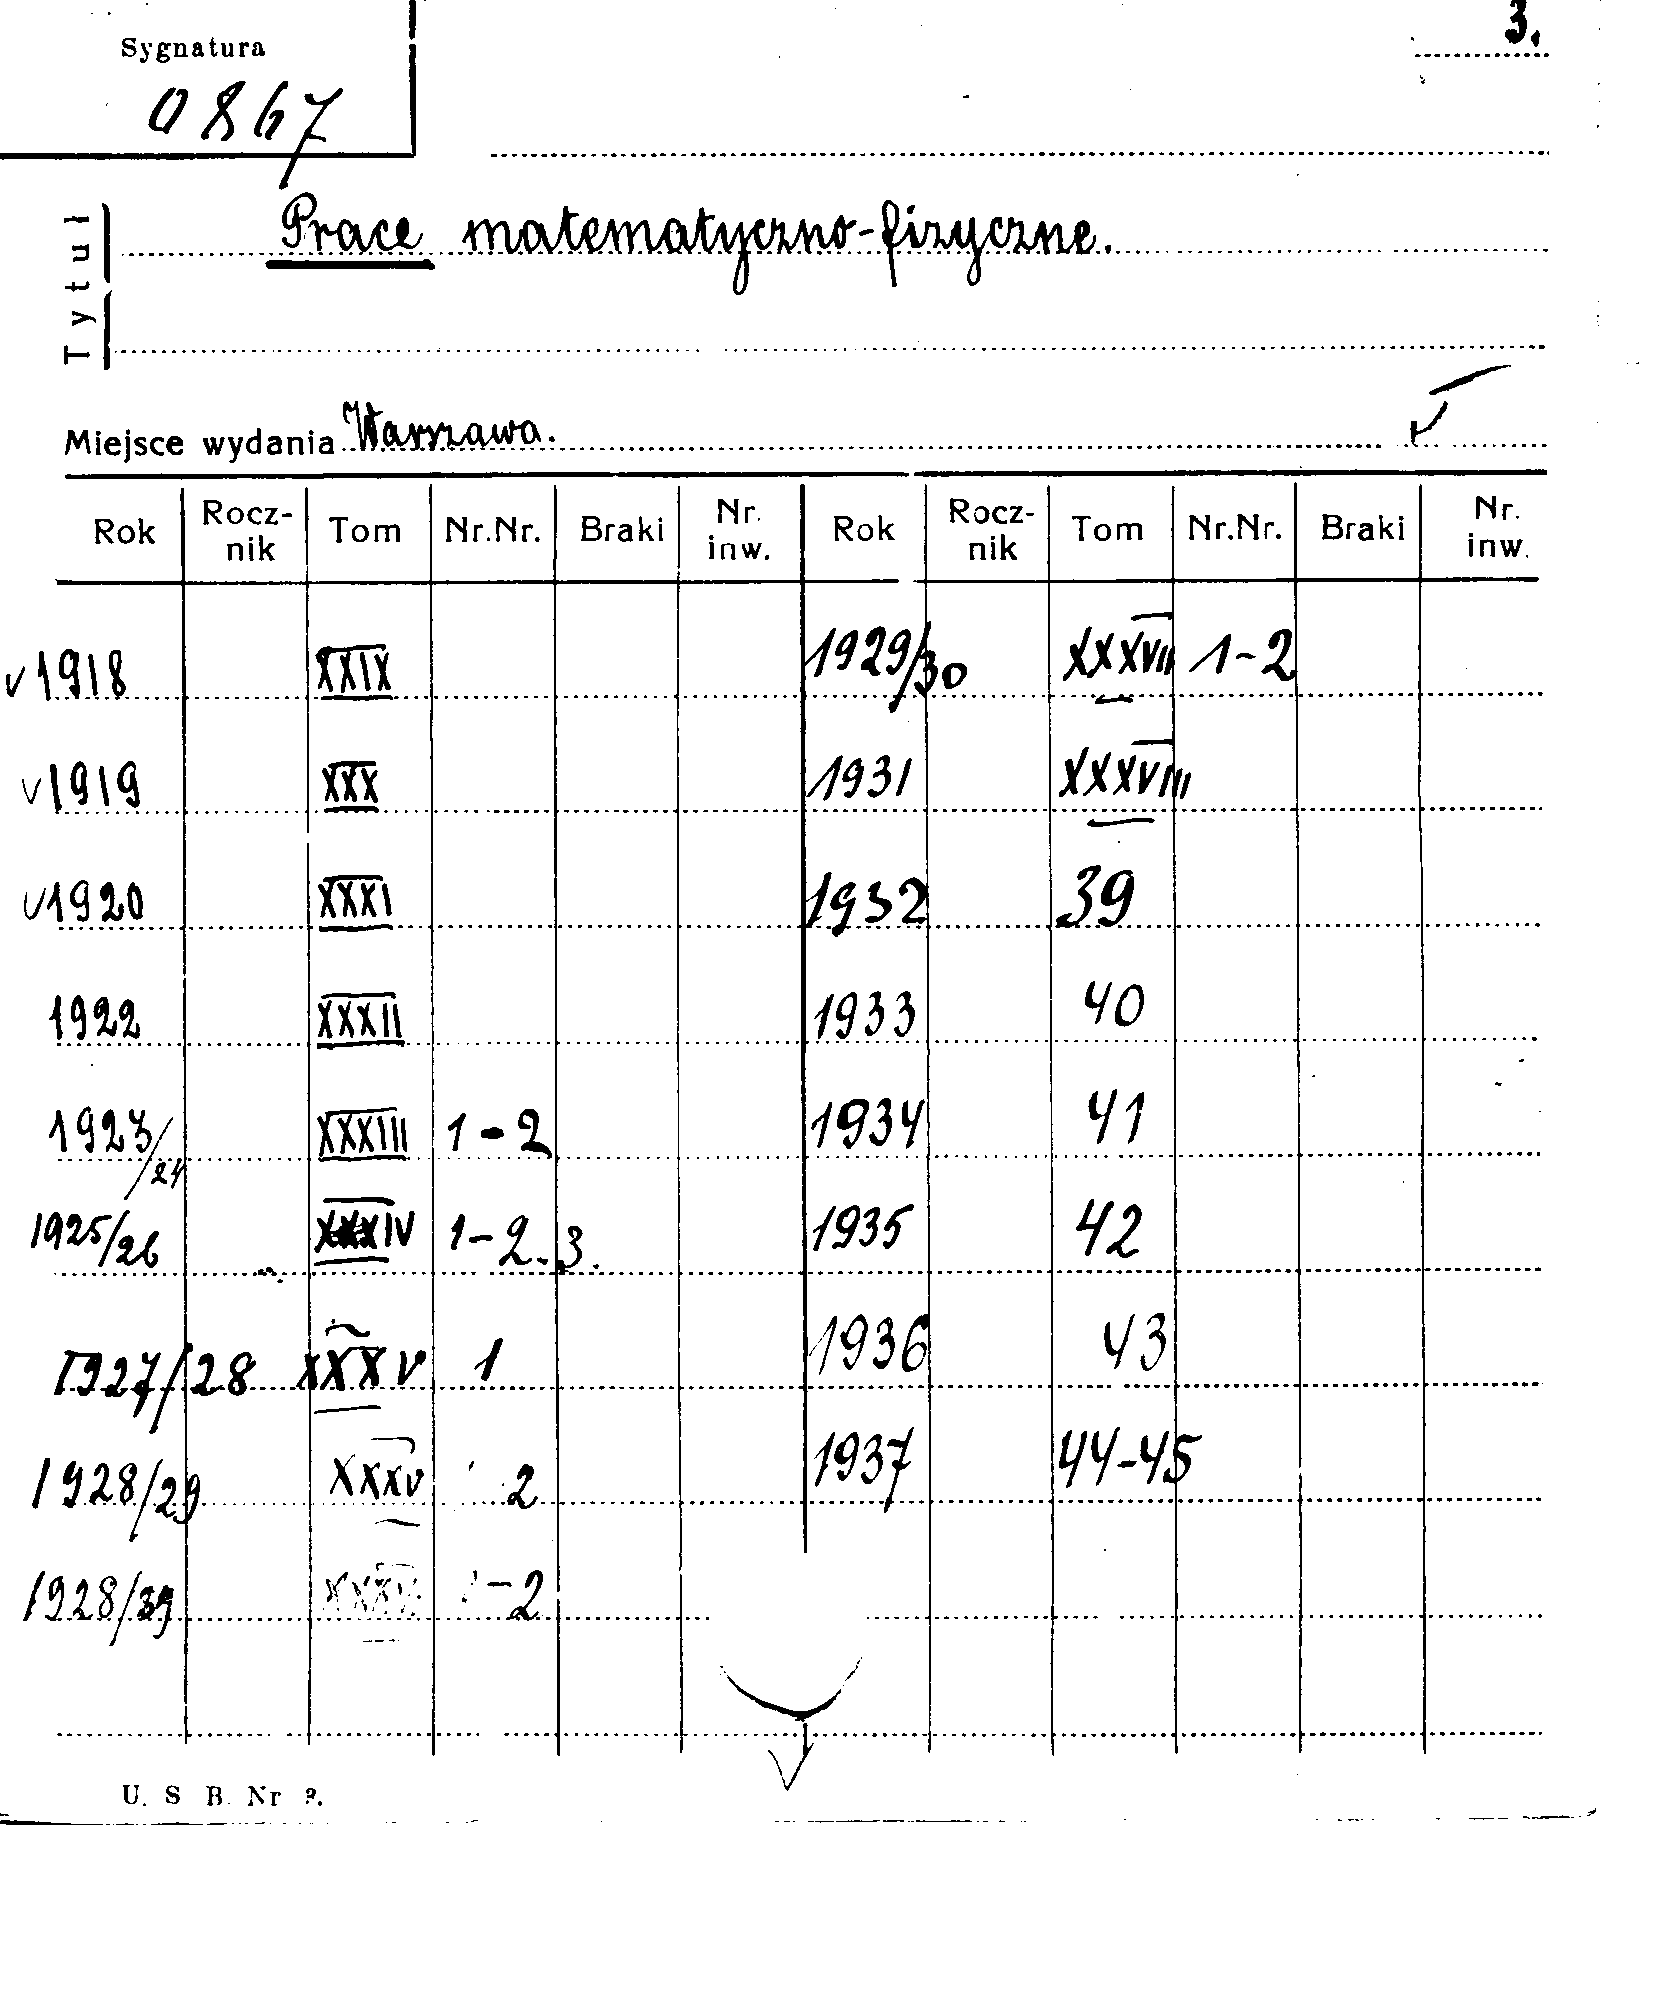 3.
Sygnatura
0867
Tytuł
Prace matematyczno-fizyczne.
Miejsce wydania Warszawa.
Rok Rocz-nik Tom Nr.Nr. Braki Nr. inw. Rok Rocz-nik Tom Nr.Nr. Braki Nr. inw.
v 1918 XXIX 1929/30 XXXVII 1-2
v 1919 XXX 1931 XXXVIII
v 1920 XXXI 1932 39
1922 XXXII 1933 40
1923/24 XXXIII 1-2 1934 41
1925/26 XXXIV 1-2.3. 1935 42
1927/28 XXXV 1 1936 43
1928/29 XXXV 2 1937 44-45
1928/39 -2
U. S B. Nr